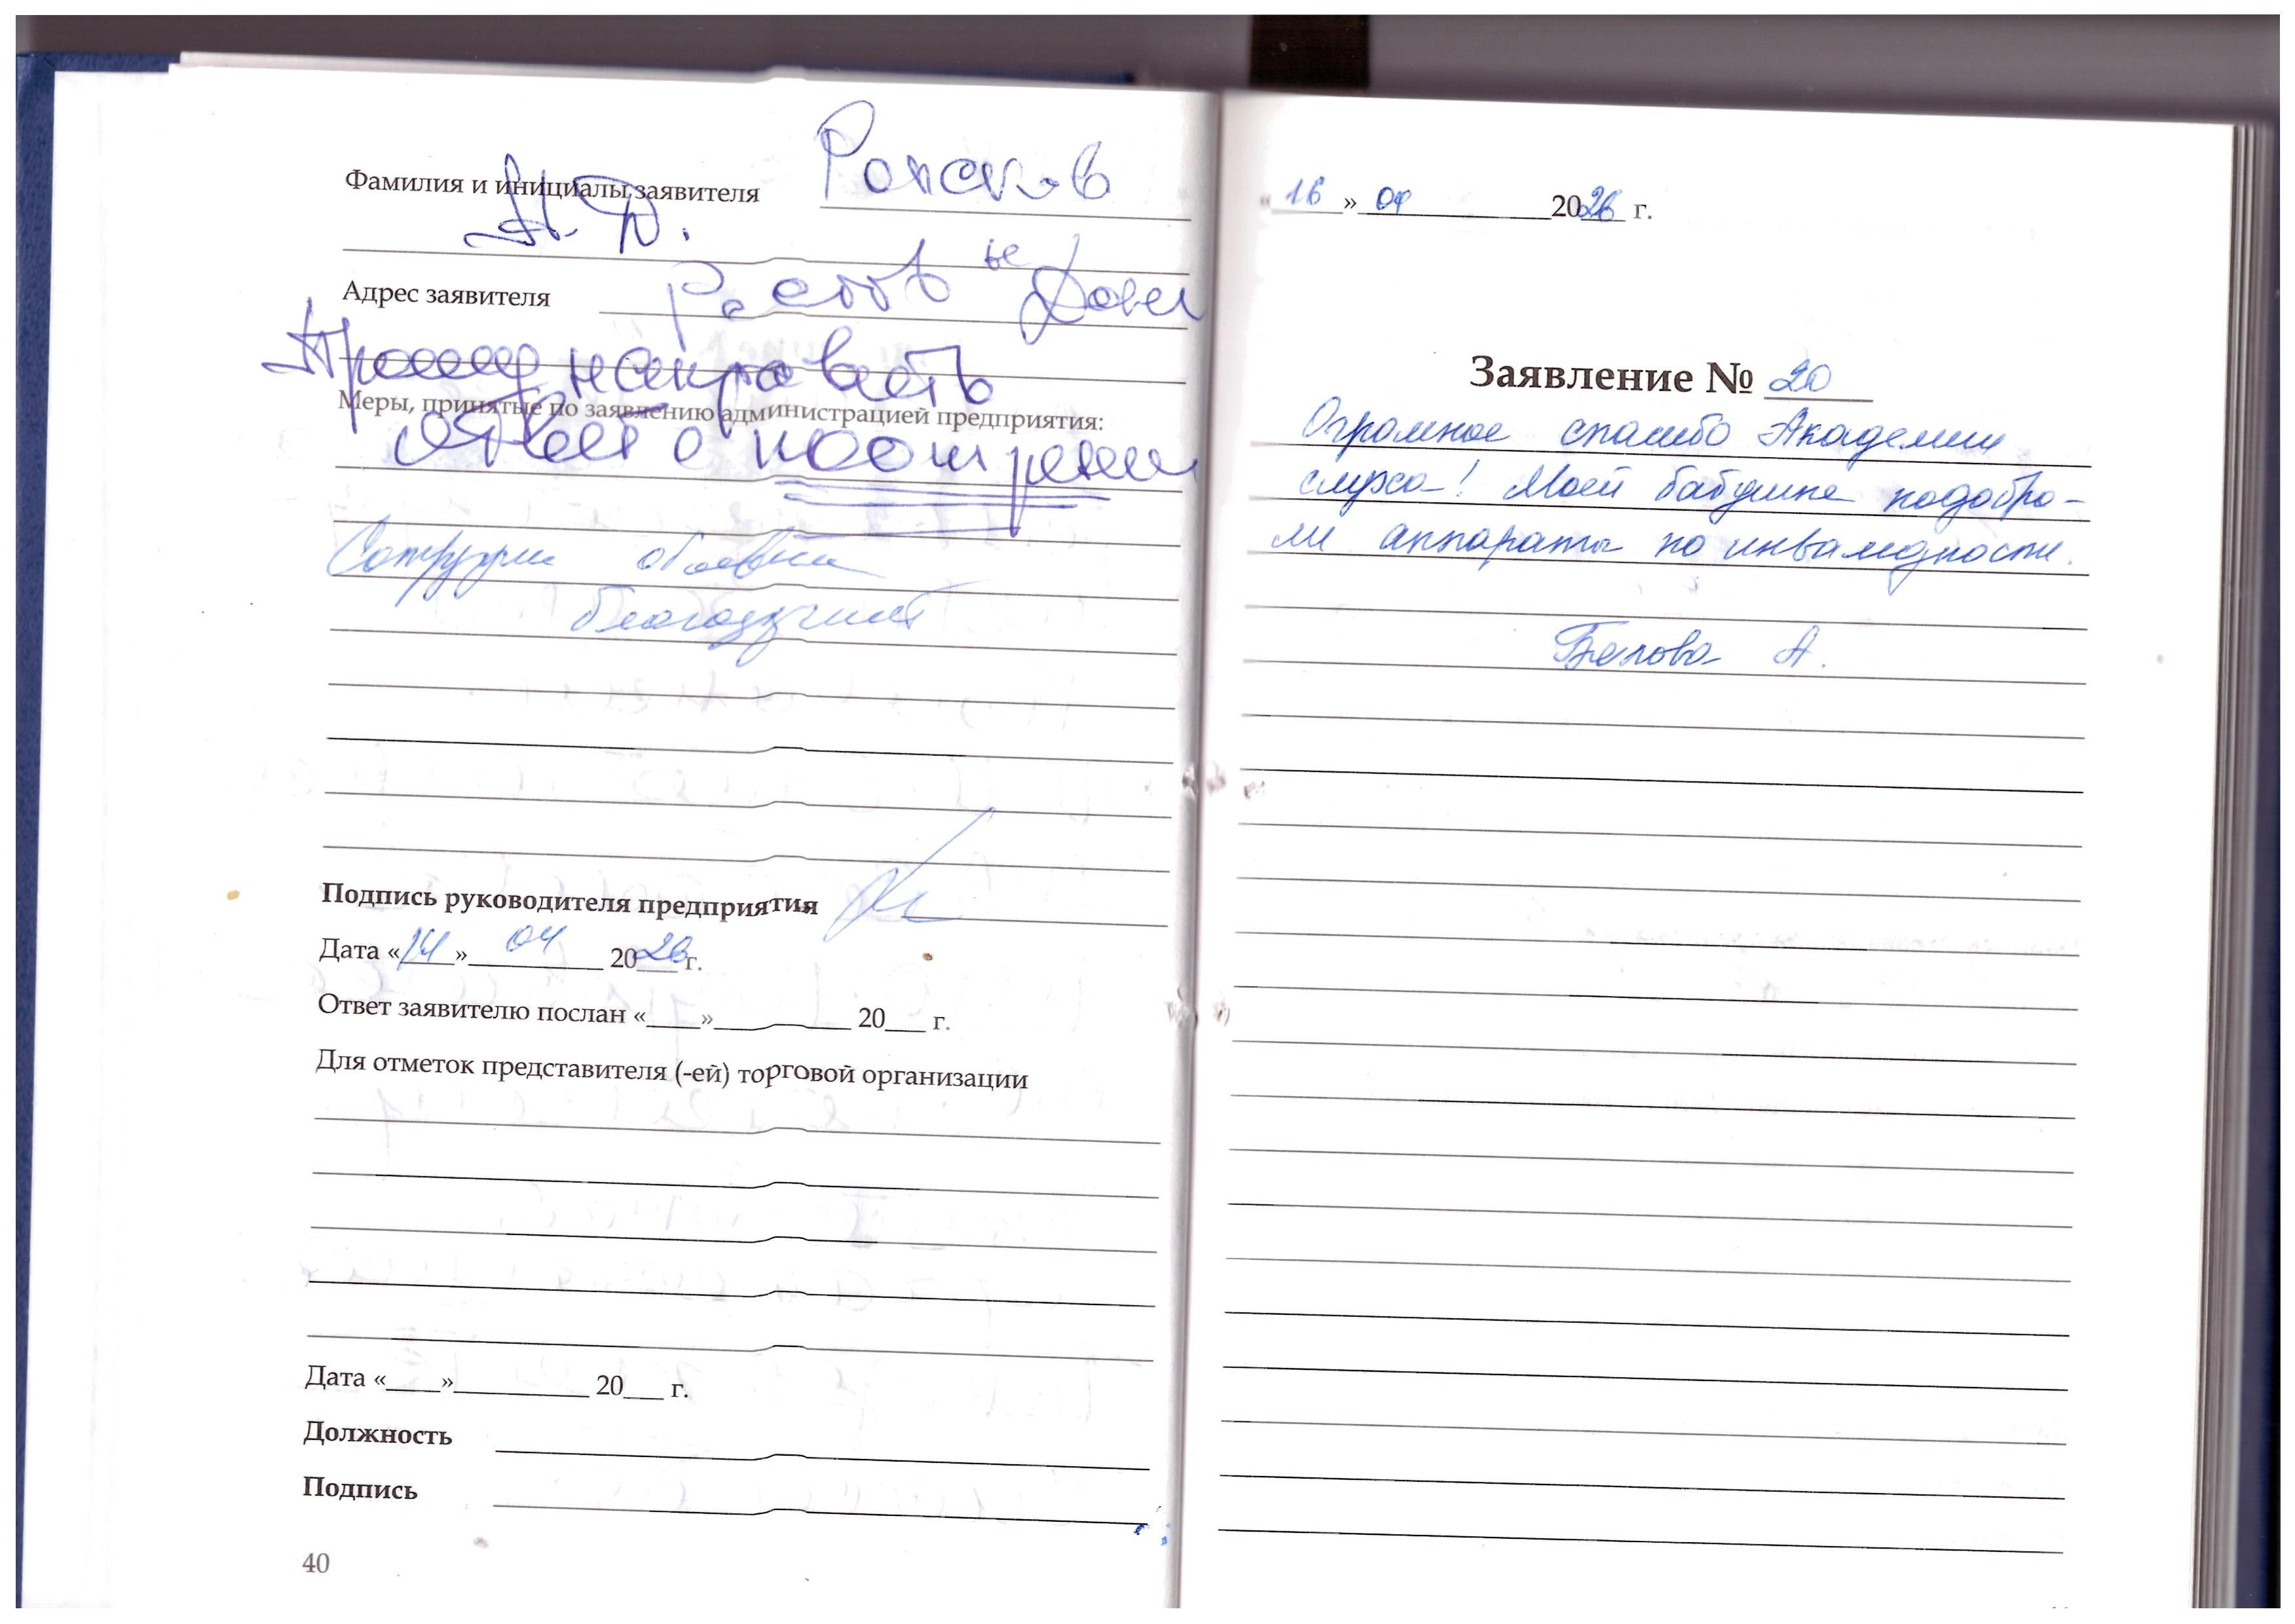 Фамилия и инициалы заявителя
Адрес заявителя
Прошу направить
Меры, принятые по заявлению администрацией предприятия:
ответ о поощрении
объявлена
Подпись руководителя предприятия
Дата «14» 04 2026 г.
Ответ заявителю послан «____»__________ 20___ г.
Для отметок представителя (-ей) торговой организации
Дата «____»__________ 20___ г.
Должность
Подпись
40
«16» 04 2026 г.
Заявление № 20
Огромное спасибо Академии
слуха! Моей бабушке подобра-
ли аппараты по инвалидности.
Белова А.